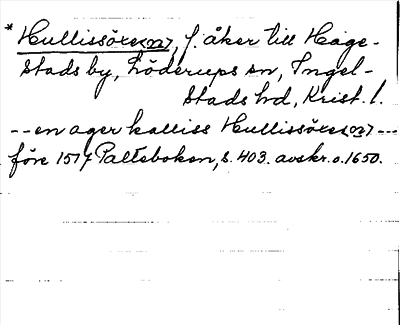 * Hullissören, f. åker till Hage-
stads by, Löderups sn, Ingel-
stads hd, Krist. l.
-- en ager kalliss Hullissören ---
före 1517 Palteboken, s. 403. avskr. o. 1650.